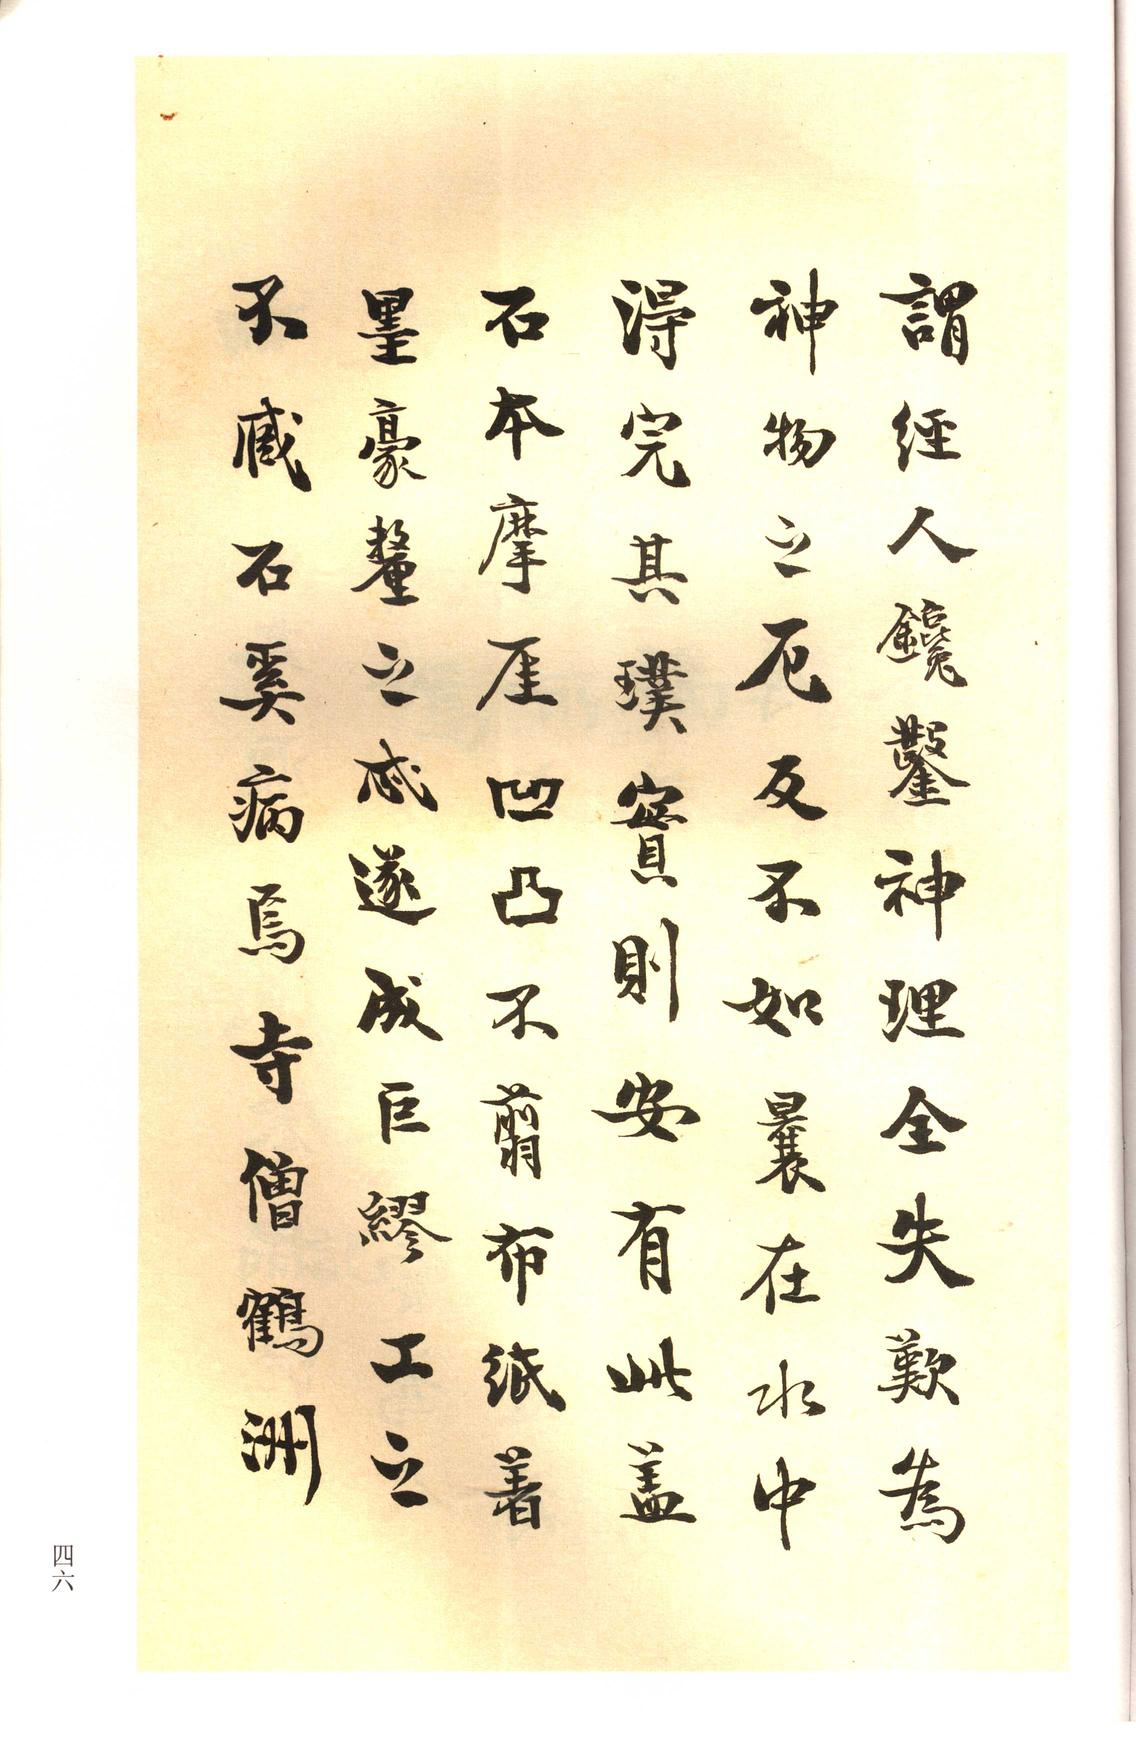 謂經人鑱鑿神理全失歎為
神物之厄反不如曩在水中
得完其璞實則安有此蓋
石本摩厓凹凸不翦布紙著
墨豪釐之慼遂成巨繆工之
不臧石奚病焉寺僧鶴洲
四六